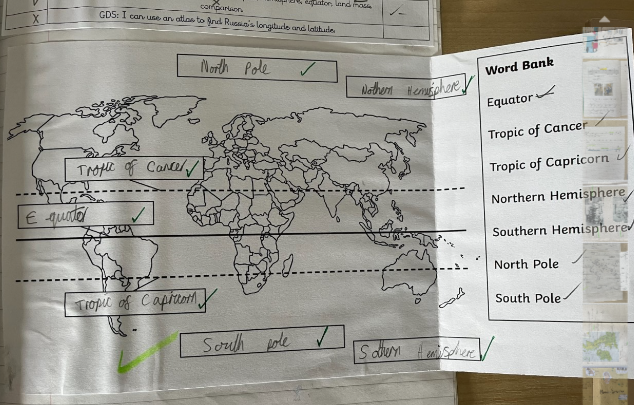 comparison.
GDS: I can use an atlas to find Russia's longitude and latitude.
North Pole
Nothern Hemisphere
Tropic of Cancer
E quator
Tropic of Capricorn
South pole
Sothern Hemisphere
Word Bank
Equator
Tropic of Cancer
Tropic of Capricorn
Northern Hemisphere
Southern Hemisphere
North Pole
South Pole